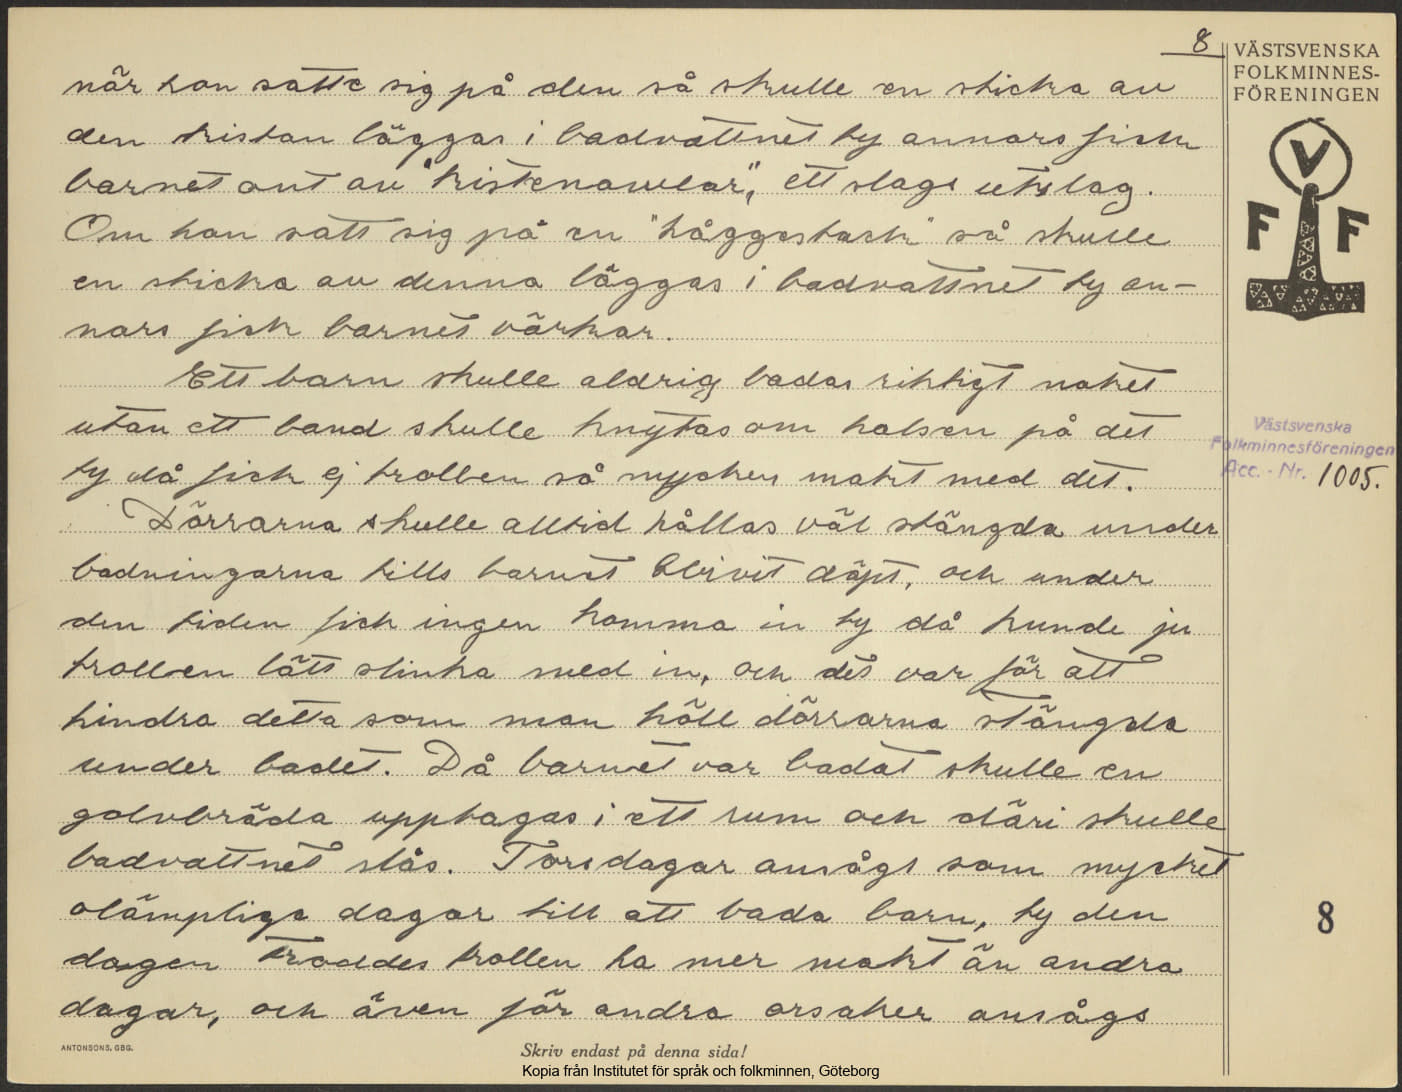 8
när hon satte sig på den så skulle en sticka av
den kistan läggas i badvattnet ty annars fick
barnet ont av "kistenavlar", ett slags utslag.
Om hon satt sig på en "håggestack" så skulle
en sticka av denna läggas i badvattnet ty an-
nars fick barnet värkar.
Ett barn skulle aldrig badas riktigt naket
utan ett band skulle knytas om halsen på det
ty då fick ej trollen så mycken makt med det.
Dörrarna skulle alltid hållas väl stängda under
badningarna tills barnet blivit döpt, och under
den tiden fick ingen komma in ty då kunde ju
trollen lätt slinka med in, och det var för att
hindra detta som man höll dörrarna stängda
under badet. Då barnet var badat skulle en
golvbräda upptagas i ett rum och däri skulle
badvattnet slås. Torsdagar ansågs som mycket
olämpliga dagar till att bada barn, ty den
dagen troddes trollen ha mer makt än andra
dagar, och även för andra orsaker ansågs
VÄSTSVENSKA
FOLKMINNES-
FÖRENINGEN
V
F F
Västsvenska
Folkminnesföreningen
Acc. - Nr. 1005.
8
ANTONSONS, GBG.
Skriv endast på denna sida!
Kopia från Institutet för språk och folkminnen, Göteborg